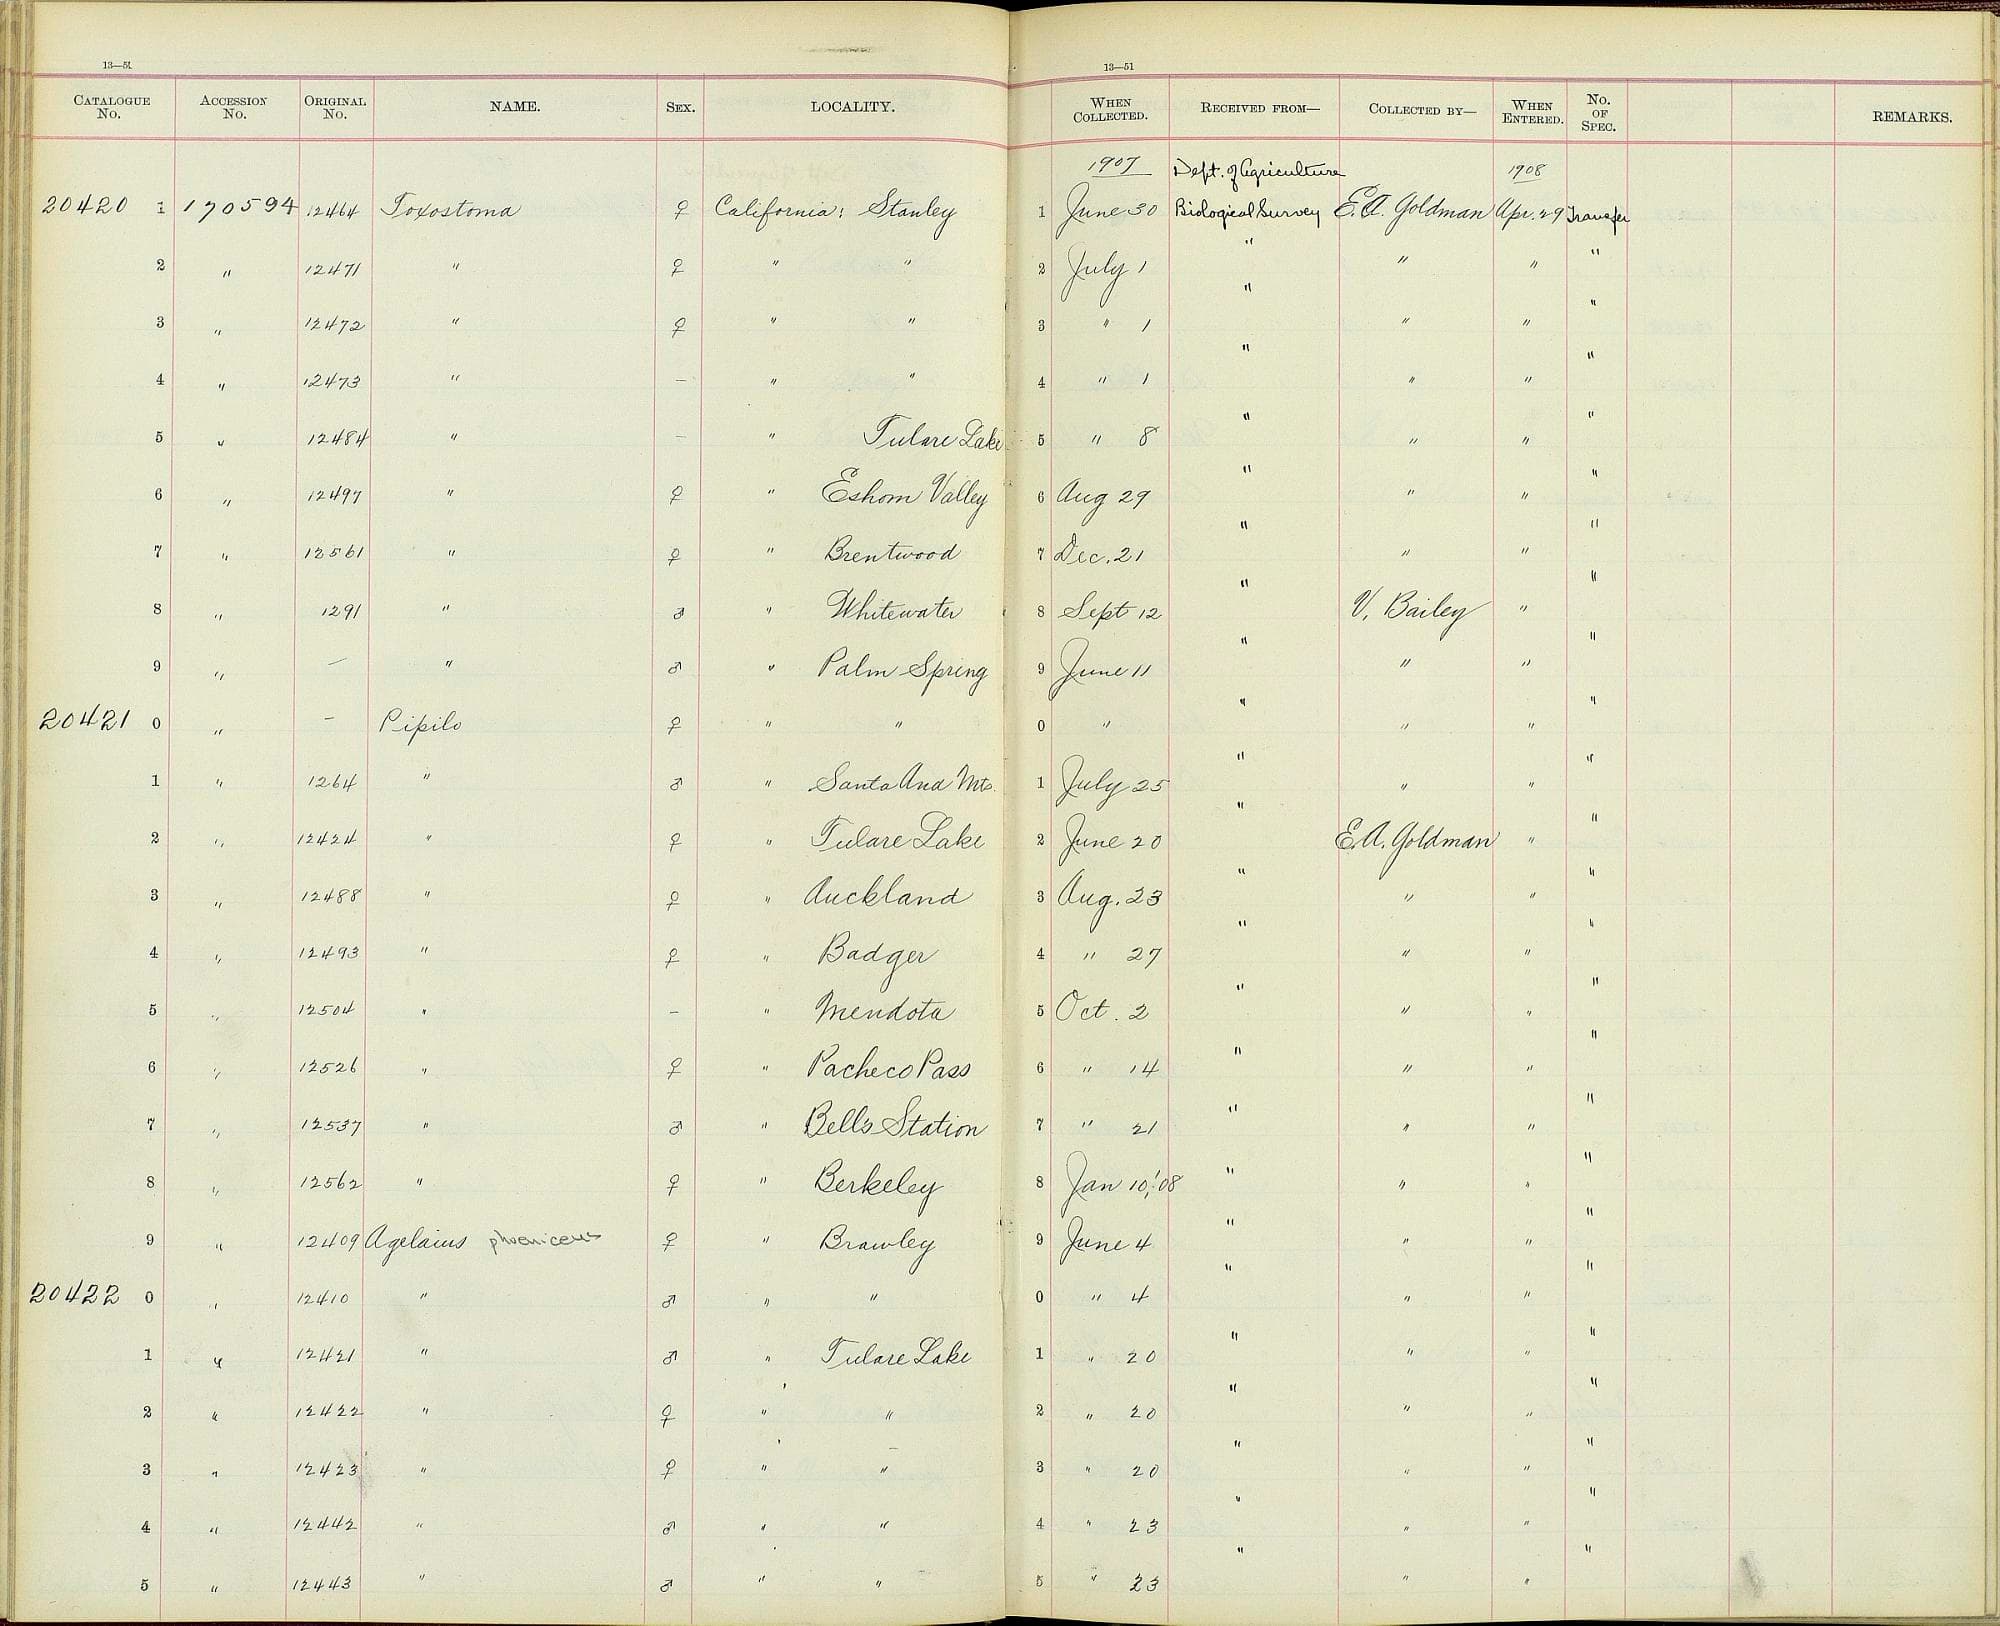 13—51 13—51
CATALOGUE No. ACCESSION No. ORIGINAL No. NAME. SEX. LOCALITY. WHEN COLLECTED. RECEIVED FROM— COLLECTED BY— WHEN ENTERED. No. OF SPEC. REMARKS.
1907 Dept. of Agriculture 1908
20420 1 170594 12464 Toxostoma ♀ California: Stanley 1 June 30 Biological Survey E.A. Goldman Apr. 29 Transfer
2 " 12471 " ♀ " " 2 July 1 " " " "
3 " 12472 " ♀ " " 3 " 1 " " " "
4 " 12473 " — " " 4 " 1 " " " "
5 " 12484 " — " Tulare Lake 5 " 8 " " " "
6 " 12497 " ♀ " Eshom Valley 6 Aug 29 " " " "
7 " 12561 " ♀ " Brentwood 7 Dec. 21 " " " "
8 " 1291 " ♂ " Whitewater 8 Sept 12 " V. Bailey " "
9 " — " ♂ " Palm Spring 9 June 11 " " " "
20421 0 " — Pipilo ♀ " " 0 " " " " "
1 " 1264 " ♂ " Santa Ana Mts. 1 July 25 " " " "
2 " 12424 " ♀ " Tulare Lake 2 June 20 " E.A. Goldman " "
3 " 12488 " ♀ " Auckland 3 Aug. 23 " " " "
4 " 12493 " ♀ " Badger 4 " 27 " " " "
5 " 12504 " — " Mendota 5 Oct. 2 " " " "
6 " 12526 " ♀ " Pacheco Pass 6 " 14 " " " "
7 " 12537 " ♂ " Bells Station 7 " 21 " " " "
8 " 12562 " ♀ " Berkeley 8 Jan 10, '08 " " " "
9 " 12409 Agelaius phoeniceus ♀ " Brawley 9 June 4 " " " "
20422 0 " 12410 " ♂ " " 0 " 4 " " " "
1 " 12421 " ♂ " Tulare Lake 1 " 20 " " " "
2 " 12422 " ♀ " " 2 " 20 " " " "
3 " 12423 " ♀ " " 3 " 20 " " " "
4 " 12442 " ♂ " " 4 " 23 " " " "
5 " 12443 " ♂ " " 5 " 23 " " " "